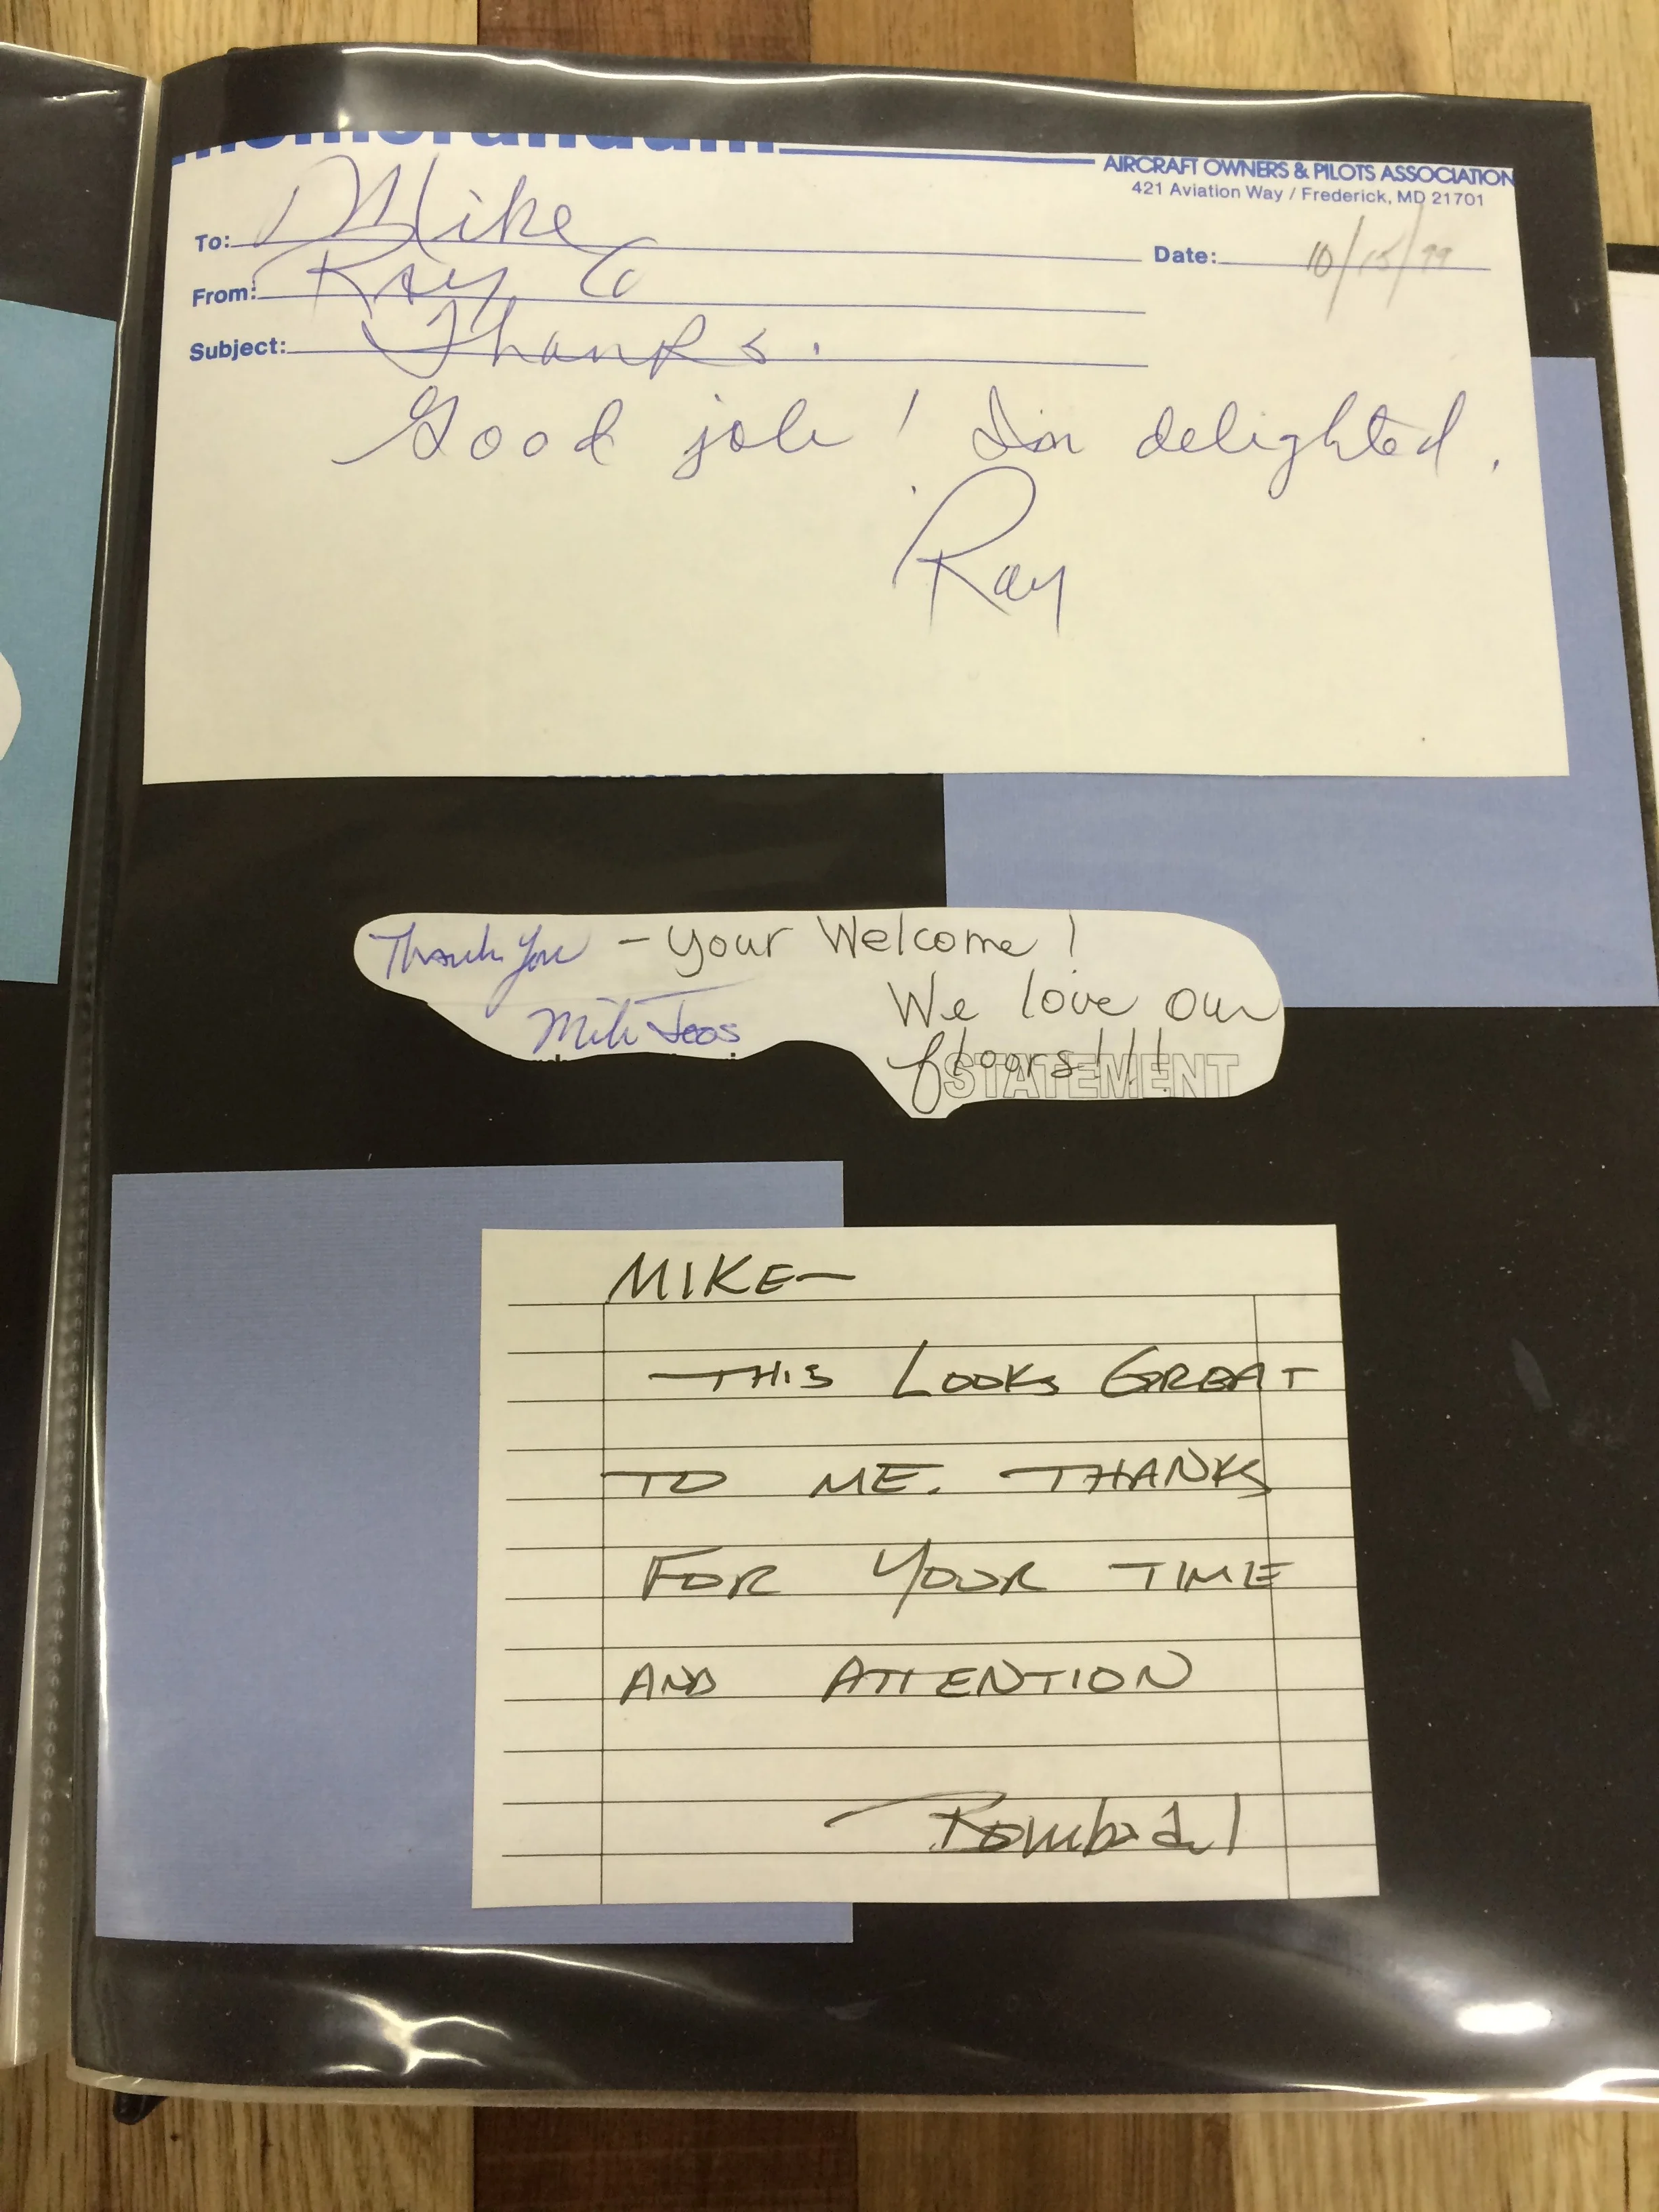 memorandum
AIRCRAFT OWNERS & PILOTS ASSOCIATION
421 Aviation Way / Frederick, MD 21701
To: Mike
Date: 10/15/99
From: Ray C
Subject: Thanks.
Good job! I'm delighted.
Ray
Thank You - Your Welcome!
We love our
Mike
floors!!!
STATEMENT
MIKE—
THIS LOOKS GREAT
TO ME. THANKS
FOR YOUR TIME
AND ATTENTION